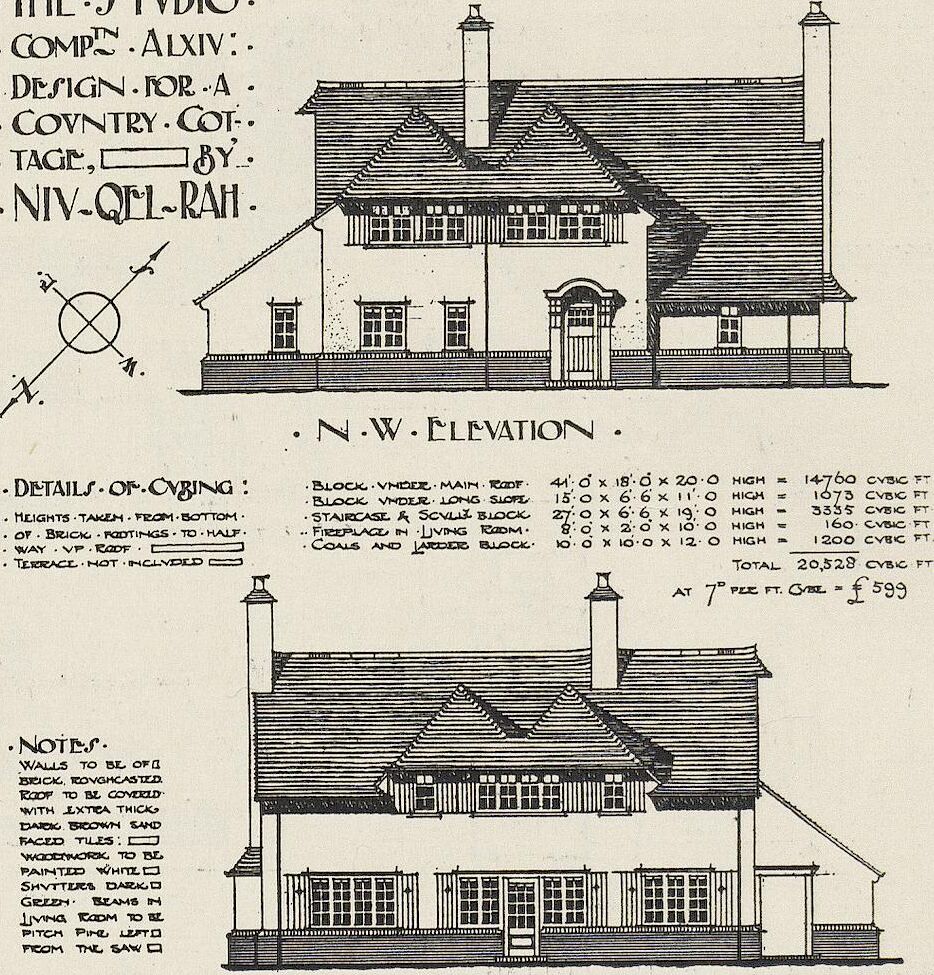 THE · STVDIO ·
COMPTN · ALXIV : ·
DESIGN · FOR · A ·
· COVNTRY · COT- ·
TAGE, BY ·
· NIV~QEL~RAH ·
E.
S.
W.
N.
· N · W · ELEVATION ·
· DETAILS · OF · CVBING :
· HEIGHTS · TAKEN · FROM · BOTTOM ·
· OF · BRICK · FOOTINGS · TO · HALF ·
· WAY · VP · ROOF ·
· TERRACE · NOT · INCLVDED
· BLOCK · VNDER · MAIN · ROOF · 41'·0" x 18'·0" x 20·0 HIGH = 14760 CVBIC FT
· BLOCK · VNDER · LONG · SLOPE · 15·0 x 6'6 x 11'·0 HIGH = 1073 CVBIC FT
· STAIRCASE & SCVLLY BLOCK · 27·0 x 6'6 x 19'·0 HIGH = 3335 CVBIC FT
· FIREPLACE IN LIVING ROOM · 8'·0 x 2'·0 x 10'·0 HIGH = 160 · CVBIC FT
· COALS AND LARDER BLOCK · 10·0 x 10·0 x 12·0 HIGH = 1200 CVBIC FT
TOTAL 20,528 CVBIC FT
AT 7D PER FT. CVBE = £599
· NOTES ·
WALLS TO BE OF
BRICK, ROVGHCASTED.
ROOF TO BE COVERED
WITH EXTRA THICK
DARK BROWN SAND
FACED TILES :
WOODWORK TO BE
PAINTED WHITE
SHVTTERS DARK
GREEN · BEAMS IN
LIVING ROOM TO BE
PITCH PINE LEFT
FROM THE SAW